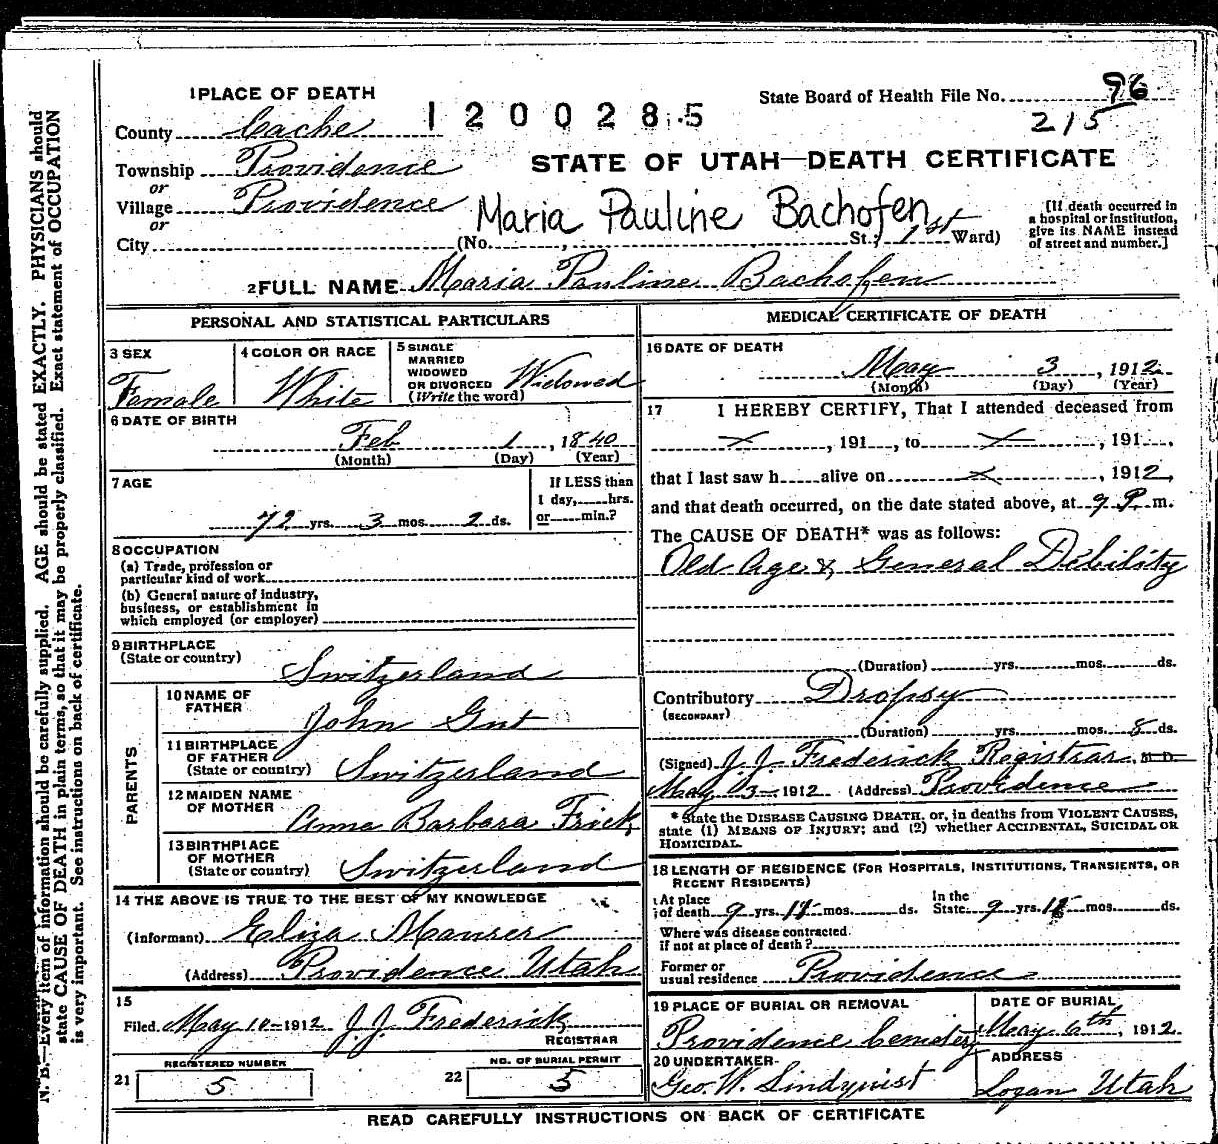 N. B.—Every item of information should be carefully supplied. AGE should be stated EXACTLY. PHYSICIANS should
state CAUSE OF DEATH in plain terms, so that it may be properly classified. Exact statement of OCCUPATION
is very important. See instructions on back of certificate.
1 PLACE OF DEATH
State Board of Health File No. 96
1200285
215
County Cache
STATE OF UTAH—DEATH CERTIFICATE
Township Providence
or
Village Providence
or
Maria Pauline Bachofen
City (No. , St.; 1st Ward)
[If death occurred in
a hospital or institution,
give its NAME instead
of street and number.]
2 FULL NAME Maria Pauline Bachofen
PERSONAL AND STATISTICAL PARTICULARS
3 SEX
Female
4 COLOR OR RACE
White
5 SINGLE
MARRIED
WIDOWED
OR DIVORCED
(Write the word)
Widowed
6 DATE OF BIRTH
Feb 1, 1840
(Month) (Day) (Year)
7 AGE
72 yrs. 3 mos. 2 ds.
If LESS than
1 day, hrs.
or min.?
8 OCCUPATION
(a) Trade, profession or
particular kind of work
(b) General nature of industry,
business, or establishment in
which employed (or employer)
9 BIRTHPLACE
(State or country)
Switzerland
PARENTS
10 NAME OF
FATHER
John Gut
11 BIRTHPLACE
OF FATHER
(State or country) Switzerland
12 MAIDEN NAME
OF MOTHER
Anna Barbara Frick
13 BIRTHPLACE
OF MOTHER
(State or country) Switzerland
14 THE ABOVE IS TRUE TO THE BEST OF MY KNOWLEDGE
(Informant) Eliza Maurer
(Address) Providence Utah
15
Filed May 10-1912 J.J. Frederick
REGISTRAR
REGISTERED NUMBER
21 5
NO. OF BURIAL PERMIT
22 5
MEDICAL CERTIFICATE OF DEATH
16 DATE OF DEATH
May 3, 1912
(Month) (Day) (Year)
17 I HEREBY CERTIFY, That I attended deceased from
x, 191 , to x, 191 ,
that I last saw h alive on x, 1912,
and that death occurred, on the date stated above, at 9 P. m.
The CAUSE OF DEATH* was as follows:
Old Age & General Debility
(Duration) yrs. mos. ds.
Contributory Dropsy
(SECONDARY)
(Duration) yrs. mos. 8 ds.
(Signed) J.J. Frederick Registrar, M. D.
May 3-1912 (Address) Providence
* State the DISEASE CAUSING DEATH, or, in deaths from VIOLENT CAUSES,
state (1) MEANS OF INJURY; and (2) whether ACCIDENTAL, SUICIDAL OR
HOMICIDAL.
18 LENGTH OF RESIDENCE (FOR HOSPITALS, INSTITUTIONS, TRANSIENTS, OR
RECENT RESIDENTS)
At place
of death 9 yrs. mos. ds.
In the
State 9 yrs. mos. ds.
Where was disease contracted
if not at place of death?
Former or
usual residence Providence
19 PLACE OF BURIAL OR REMOVAL
Providence Cemetery
DATE OF BURIAL
May 6th, 1912
20 UNDERTAKER
Geo. W. Lindquist
ADDRESS
Logan Utah
READ CAREFULLY INSTRUCTIONS ON BACK OF CERTIFICATE